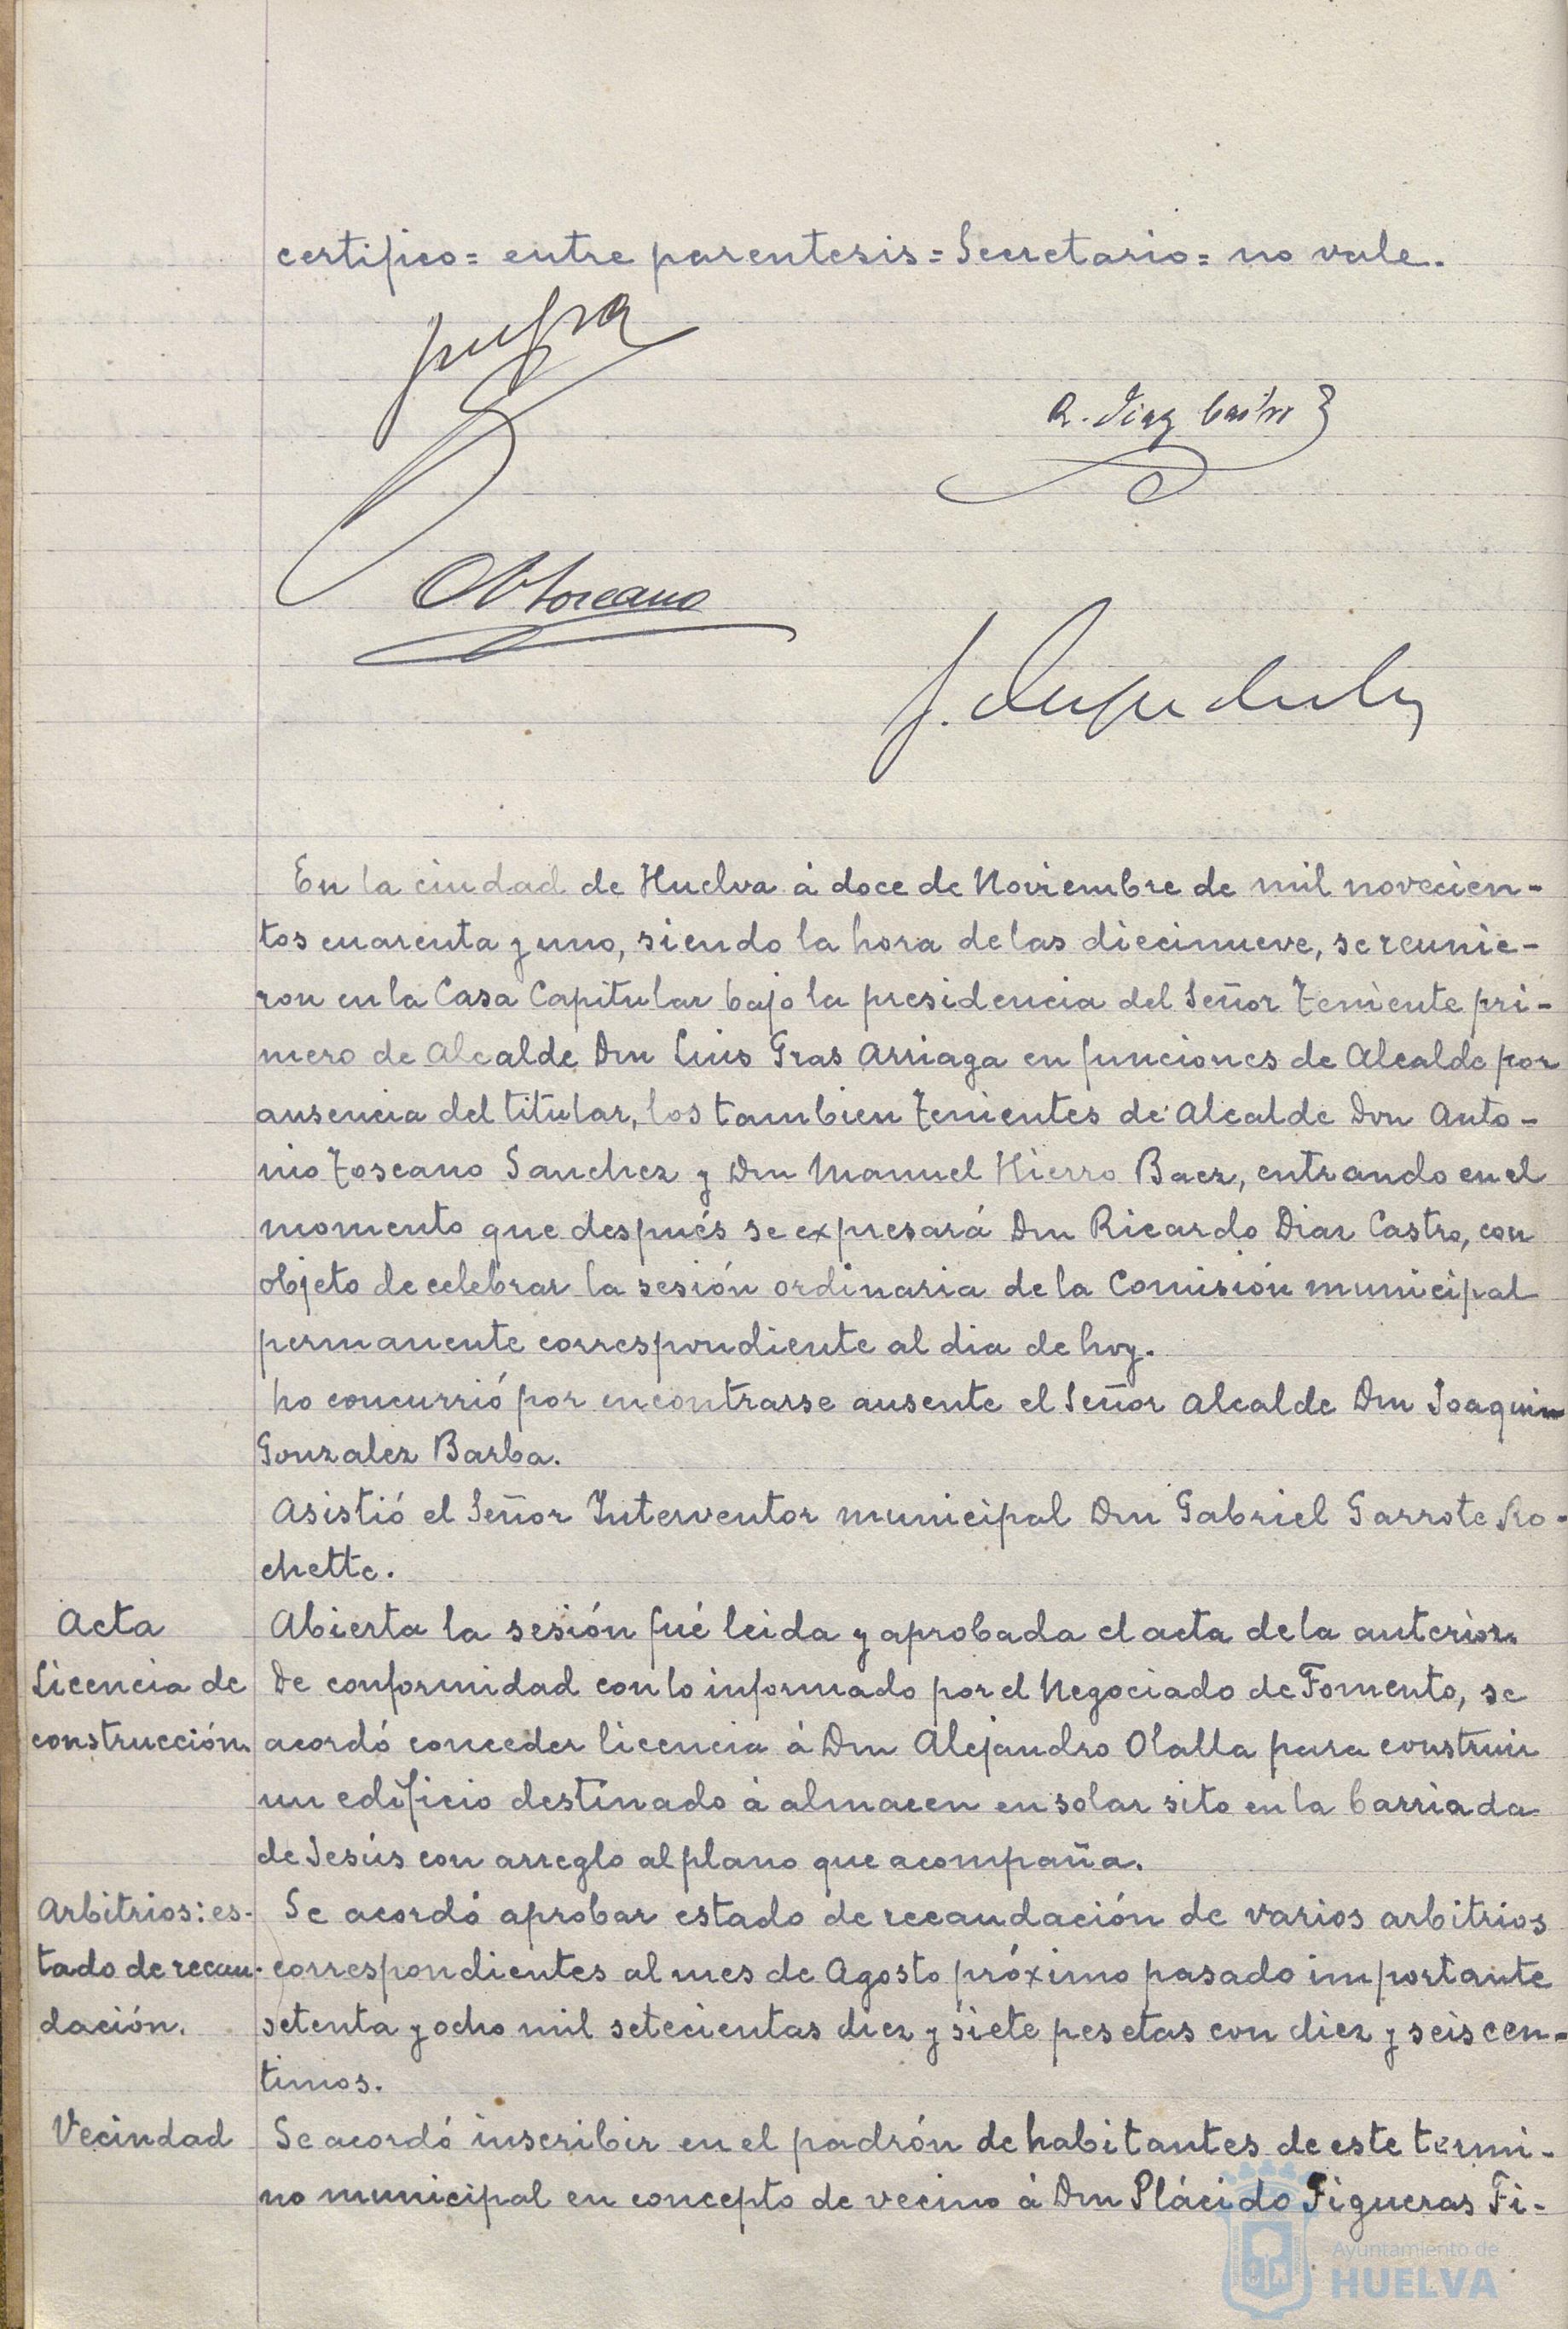 certifico= entre parentesis= Secretario= no vale.
R. Diaz Castro
A Toscano
En la ciudad de Huelva á doce de Noviembre de mil novecien-
tos cuarenta y uno, siendo la hora de las diecinueve, se reunie-
ron en la Casa Capitular bajo la presidencia del Señor Teniente pri-
mero de Alcalde Don Luis Gras Arriaga en funciones de Alcalde por
ausencia del titular, los tambien Tenientes de Alcalde Don Anto-
nio Toscano Sanchez y Don Manuel Hierro Baez, entrando en el
momento que después se expresará Don Ricardo Diaz Castro, con
objeto de celebrar la sesión ordinaria de la Comisión municipal
permanente correspondiente al dia de hoy.
No concurrió por encontrarse ausente el Señor Alcalde Don Joaquin
Gonzalez Barba.
Asistió el Señor Interventor municipal Don Gabriel Garrote Ro-
chette.
Acta
Abierta la sesión fué leida y aprobada el acta de la anterior.
Licencia de
construcción.
De conformidad con lo informado por el Negociado de Fomento, se
acordó conceder licencia á Don Alejandro Olalla para construir
un edificio destinado á almacen en solar sito en la barriada
de Jesús con arreglo al plano que acompaña.
Arbitrios: es-
tado de recau-
dación.
Se acordó aprobar estado de recaudación de varios arbitrios
correspondientes al mes de Agosto próximo pasado importante
setenta y ocho mil setecientas diez y siete pesetas con diez y seis cen-
timos.
Vecindad
Se acordó inscribir en el padrón de habitantes de este termi-
no municipal en concepto de vecino á Don Plácido Figueras Fi-
Ayuntamiento de
HUELVA